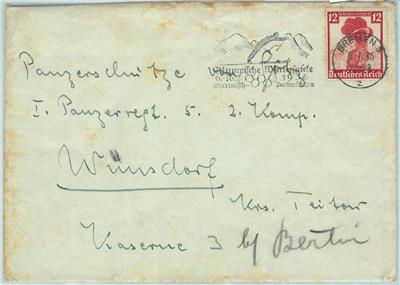 12 12
Deutsches Reich
BREMEN 5
Olympische Winterspiele
6.-16.2. 1936
Garmisch- Partenkirchen
Panzerschütze
I. Panzerregt. 5. 2. Komp.
Wünsdorf
Krs. Teltow
Kaserne 3 b/ Berlin